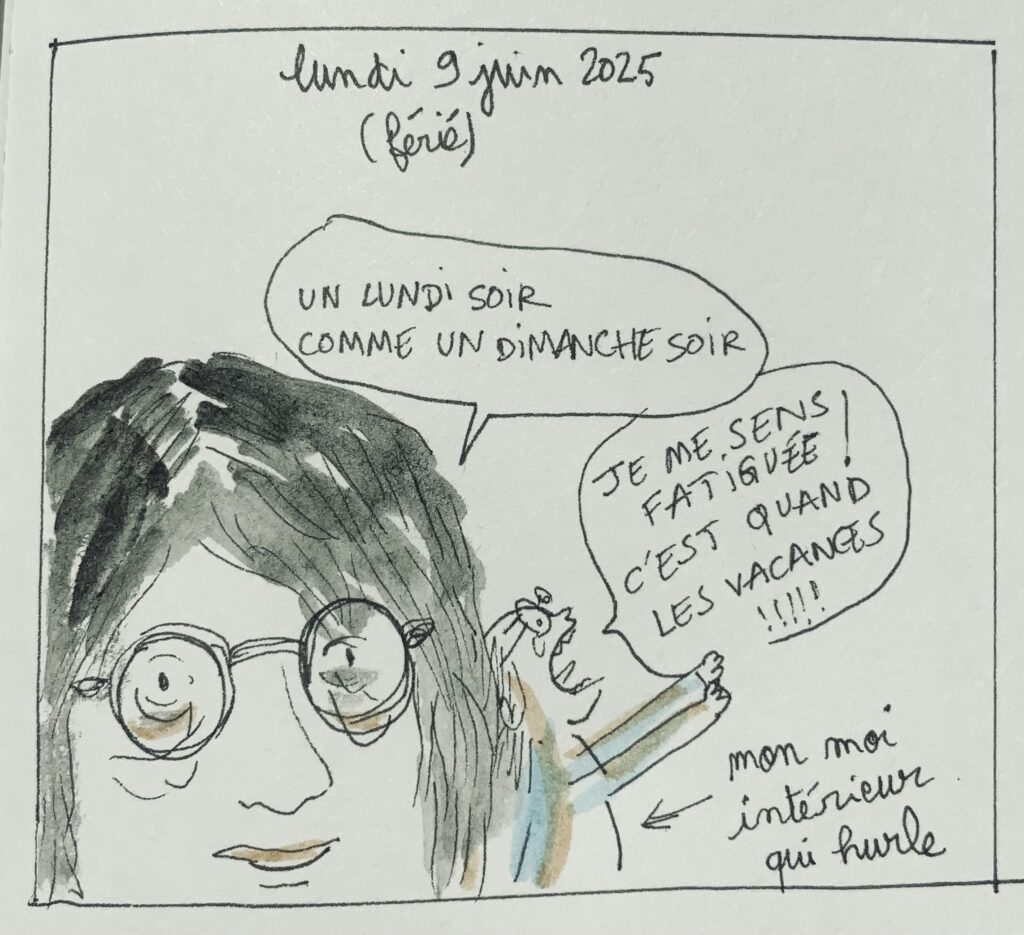 lundi 9 juin 2025
(férié)
UN LUNDI SOIR
COMME UN DIMANCHE SOIR
JE ME SENS
FATIGUÉE !
C'EST QUAND
LES VACANCES
!!!!!
mon moi
intérieur
qui hurle